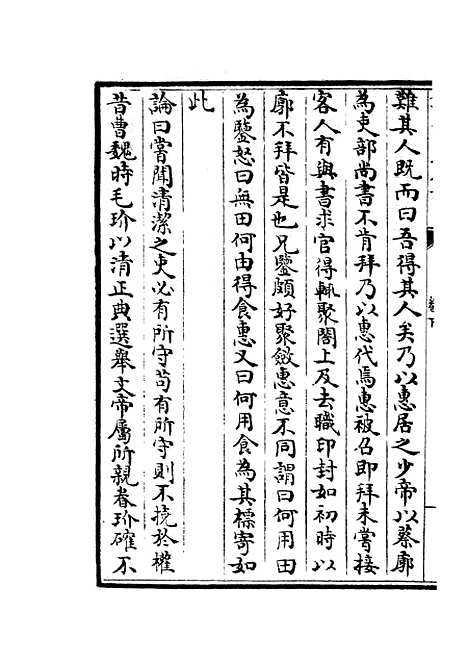 難其人既而曰吾得其人矣乃以惠居之少帝以蔡廓
為吏部尚書不肯拜乃以惠代焉惠被召即拜未嘗接
客人有與書求官得輒聚閣上及去職印封如初時以
廓不拜皆是也兄鑒頗好聚斂惠意不同謂曰何用田
為鑒怒曰無田何由得食惠又曰何用食為其標寄如
此
論曰嘗聞清潔之吏必有所守苟有所守則不撓於權
昔曹魏時毛玠以清正典選舉文帝屬所親眷玠確不